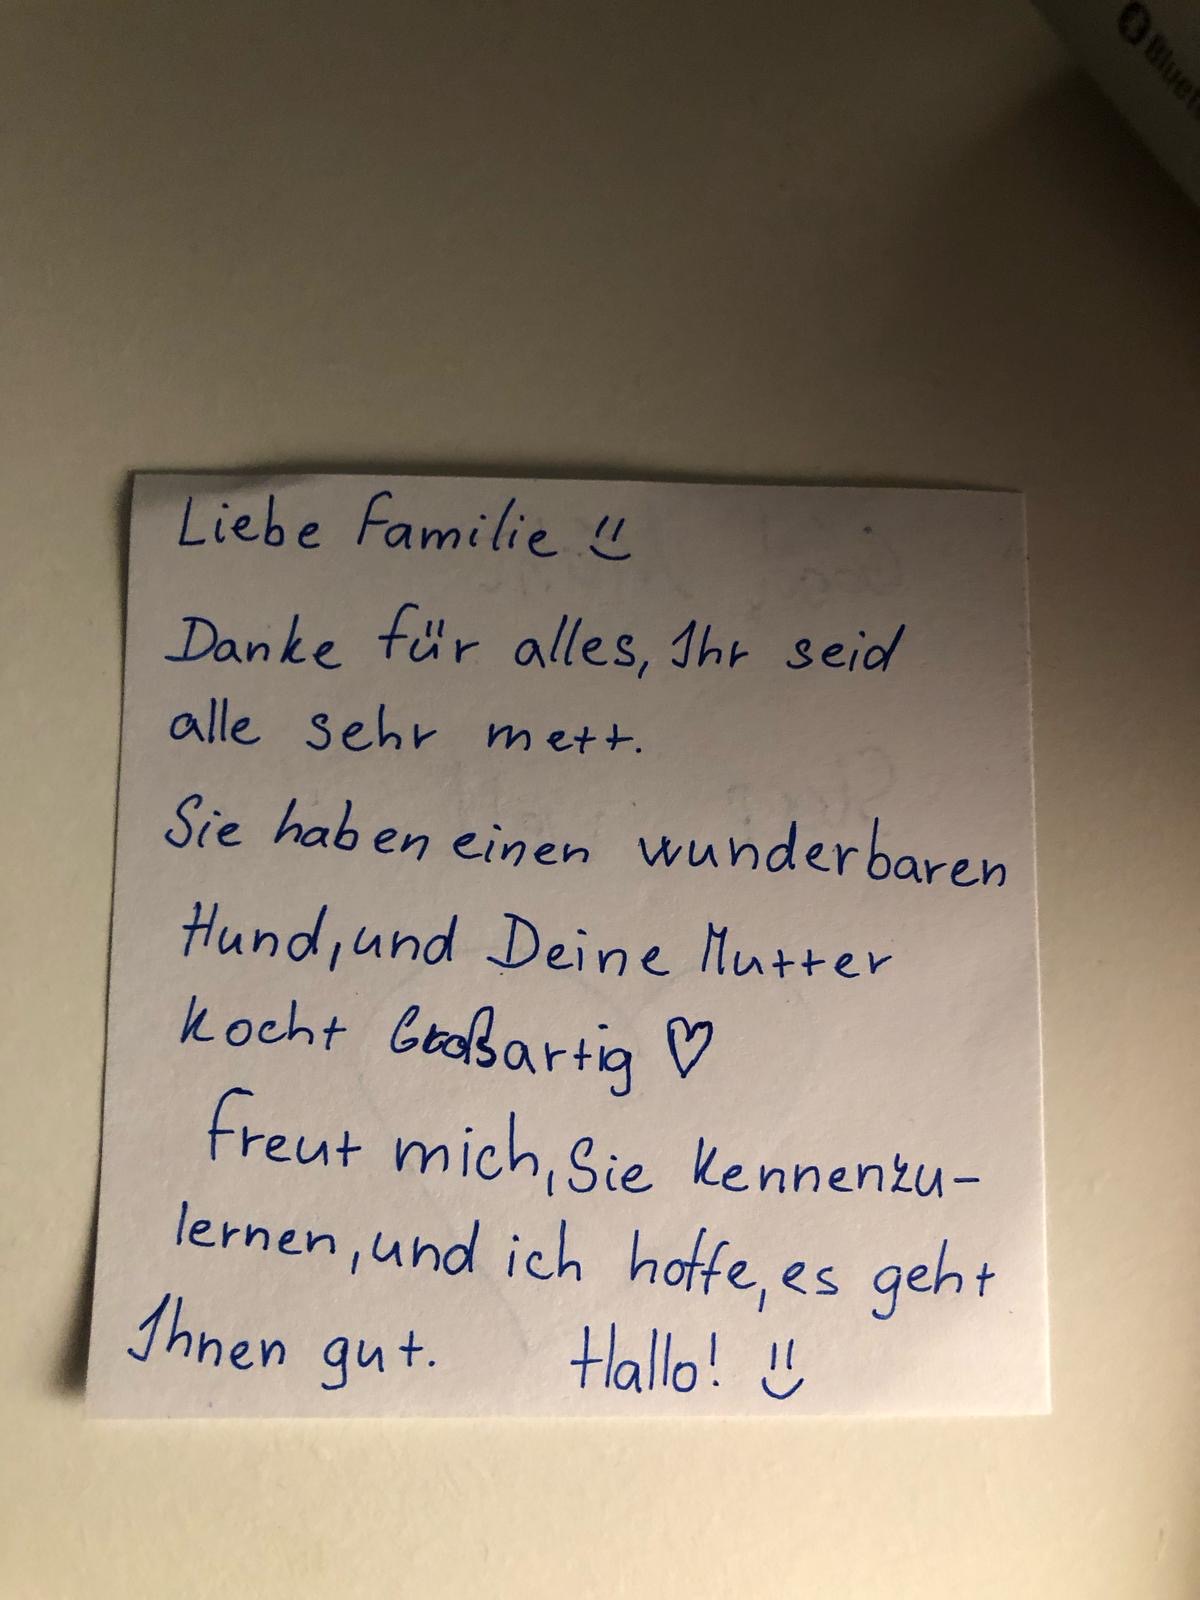 Liebe Familie
Danke für alles, Ihr seid
alle sehr mett.
Sie haben einen wunderbaren
Hund, und Deine Mutter
kocht Großartig ♡
Freut mich, Sie kennenzu-
lernen, und ich hoffe, es geht
Ihnen gut. Hallo!